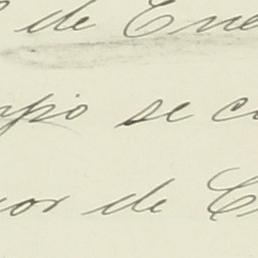 de Ene
mpo se c
or de C